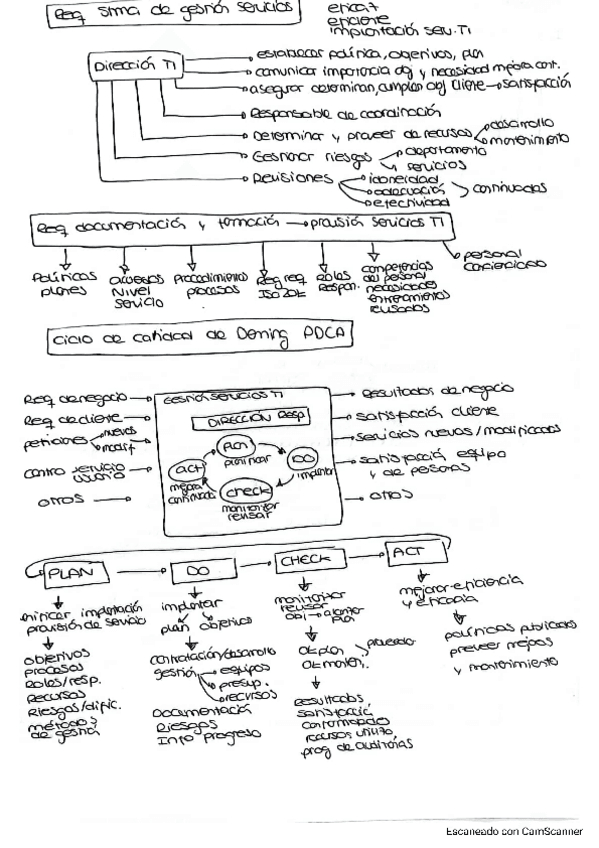 Req stma de gestión servicios
eficaz
eficiente
implantación serv. TI
Dirección TI
establecer política, objetivos, plan
comunicar importancia obj y necesidad mejora cont.
asegurar determinan, cumplan obj cliente → satisfacción
Responsable de coordinación
Determinar y proveer de recursos
desarrollo
mantenimiento
Gestionar riesgos
departamento
servicios
Revisiones
idoneidad
adecuación
efectividad
continuadas
Req documentación y formación → provisión servicios TI
Políticas
planes
acuerdos
Nivel
servicio
Procedimientos
procesos
Reg req
Roles
Respon.
competencias
del personal
necesidades
entrenamientos
revisados
personal
concienciado
Ciclo de calidad de Deming PDCA
Req de negocio
Req de cliente
peticiones
nuevos
modif.
centro servicio
usuario
otros
Gestión servicios TI
DIRECCIÓN Resp
PLAN
planificar
DO
implantar
check
monitorizar
revisar
act
mejora
continuada
Resultados de negocio
satisfacción cliente
servicios nuevos/modificados
satisfacción equipo
y de personas
otros
PLAN
DO
CHECK
ACT
planificar implantación
provisión de servicio
objetivos
procesos
Roles/resp.
Recursos
Riesgos/dific.
métodos
de gestión
implantar
plan objetivos
contratación/desarrollo
gestión
equipos
presup.
recursos
Documentación
Riesgos
Info progreso
monitorizar
revisar
obj → alcanzar
plan
Resultados
satisfacció
conformidad
recursos utiliz,
prog de auditorías
mejorar eficiencia
y eficacia
políticas publicadas
preveer mejoras
y mantenimiento
Escaneado con CamScanner